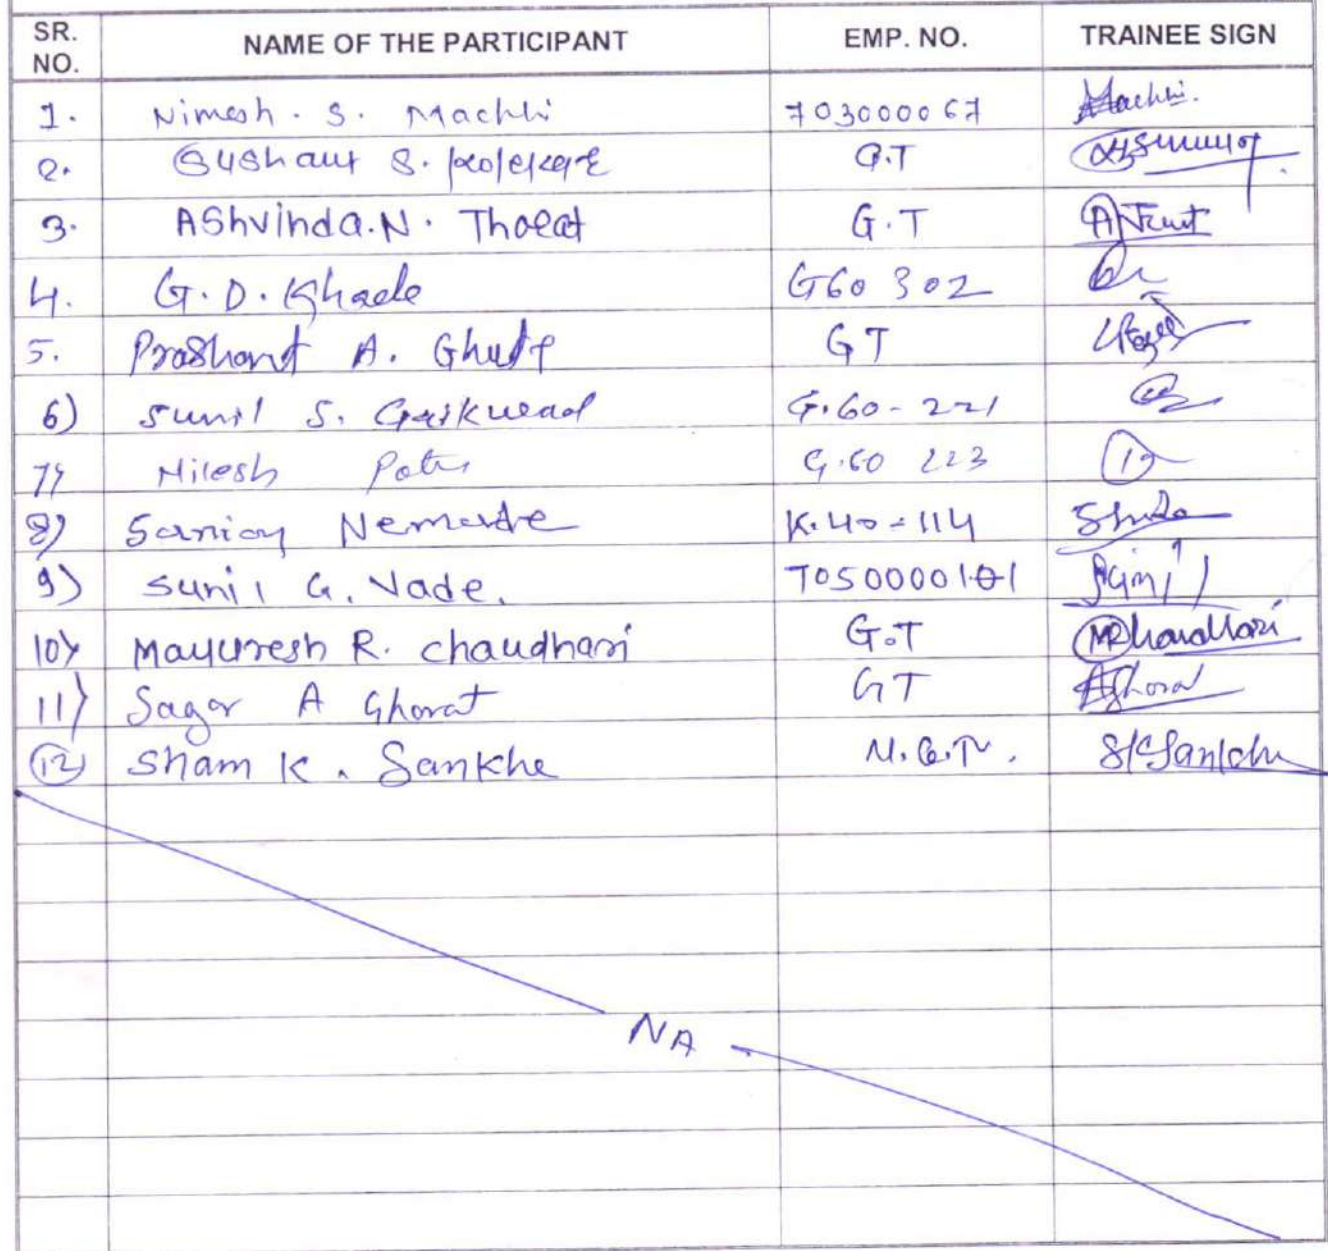 SR. NO. NAME OF THE PARTICIPANT EMP. NO. TRAINEE SIGN
1. Nimesh. S. Machhi 703000067 Machhi.
2. Sushant S. G.T
3. AShvinda.N. Thorat G.T
4. G.D. Khade G60 302
5. Prashant A. Ghute GT
6) Sunil S. Gaikwad G.60-221
7) Nilesh G.60 223
8) Nemade K.40-114
9) Sunil G. Vade. T050000101 Sunil
10) Mayuresh R. chaudhari G.T MRchaudhari
11) Sagar A Gharat GT AGharat
12 Sham K. Sankhe SKSankhe
NA